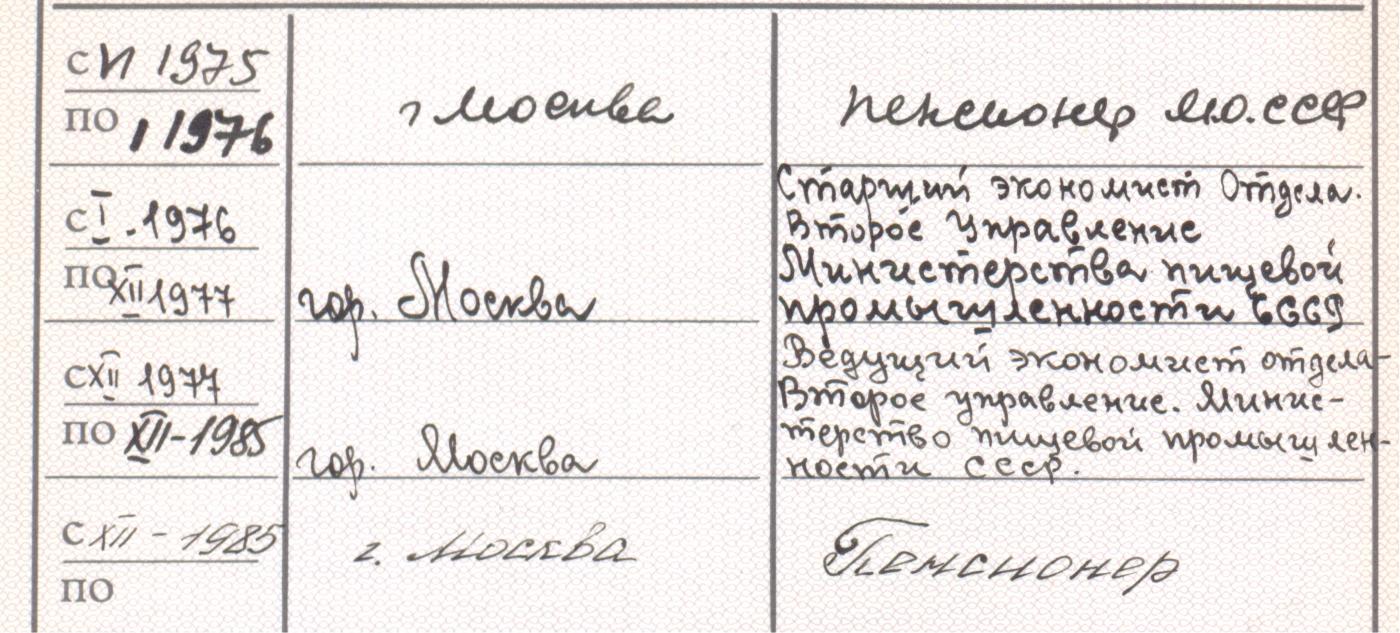 с VI 1975
по I 1976
г Москва
пенсионер М.О. СССР
с I - 1976
по XII 1977
гор. Москва
Старший экономист Отдела.
Второе Управление
Министерства пищевой
промышленности СССР
с XII 1977
по XII - 1985
гор. Москва
Ведущий экономист отдела-
Второе управление. Минис-
терство пищевой промышлен-
ности СССР.
с XII - 1985
по
г. Москва
Пенсионер